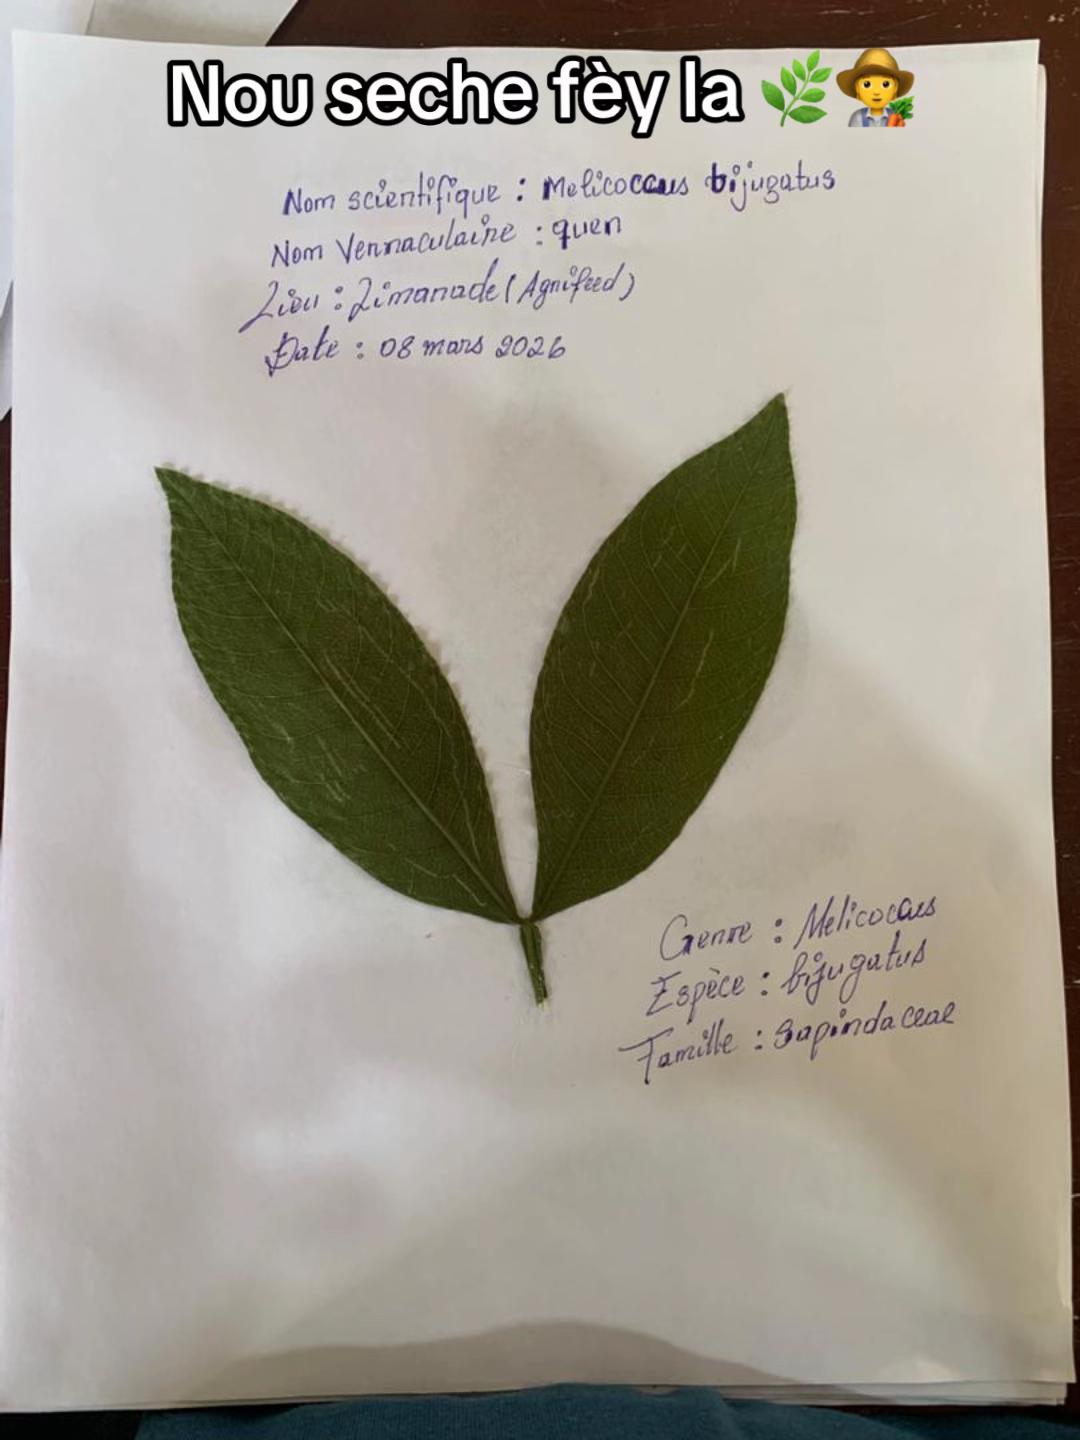 Nou seche fèy la 🌿🧑‍🌾
Nom scientifique : Melicoccus bijugatus
Nom Vernnaculaire : quen
Lieu : Limanade (Agnifeed)
Date : 08 mars 2026
Genre : Melicoccus
Espèce : bijugatus
Famille : Sapindaceae